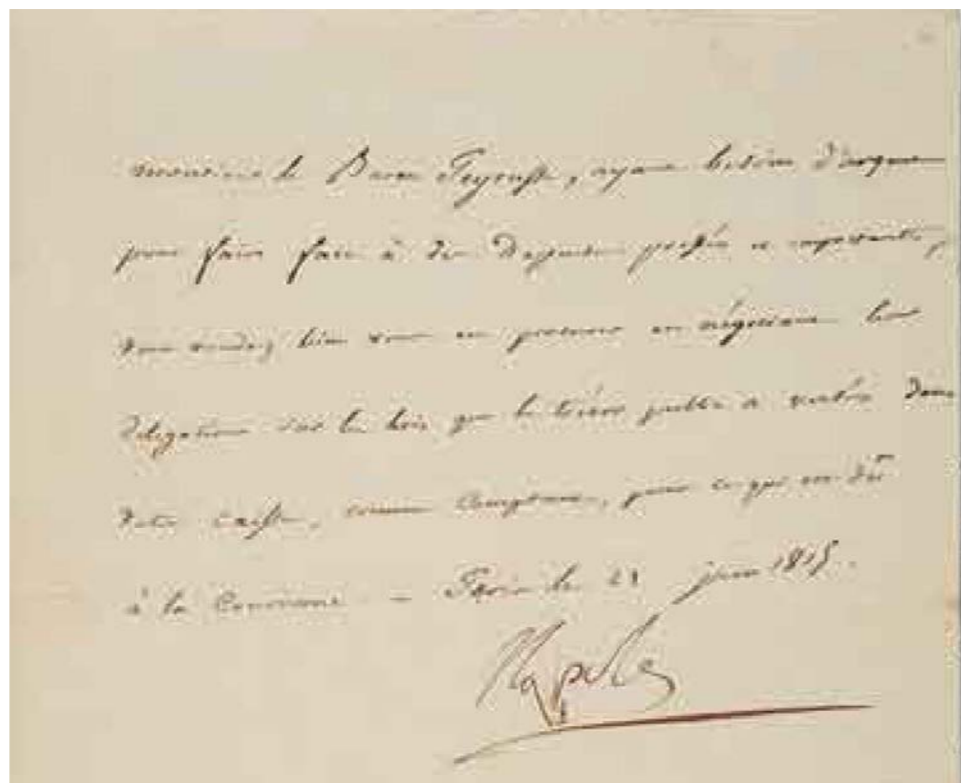 Monsieur le Baron Peyrusse, ayant besoin d'argent
pour faire face à des Dépenses pressées et importantes,
vous voudrez bien vous en procurer en négociant les
délégations sur les bois que le trésor public a versées dans
votre caisse, comme comptant, pour ce qui est dû
à la Couronne – Paris le juin 1815.
Napole